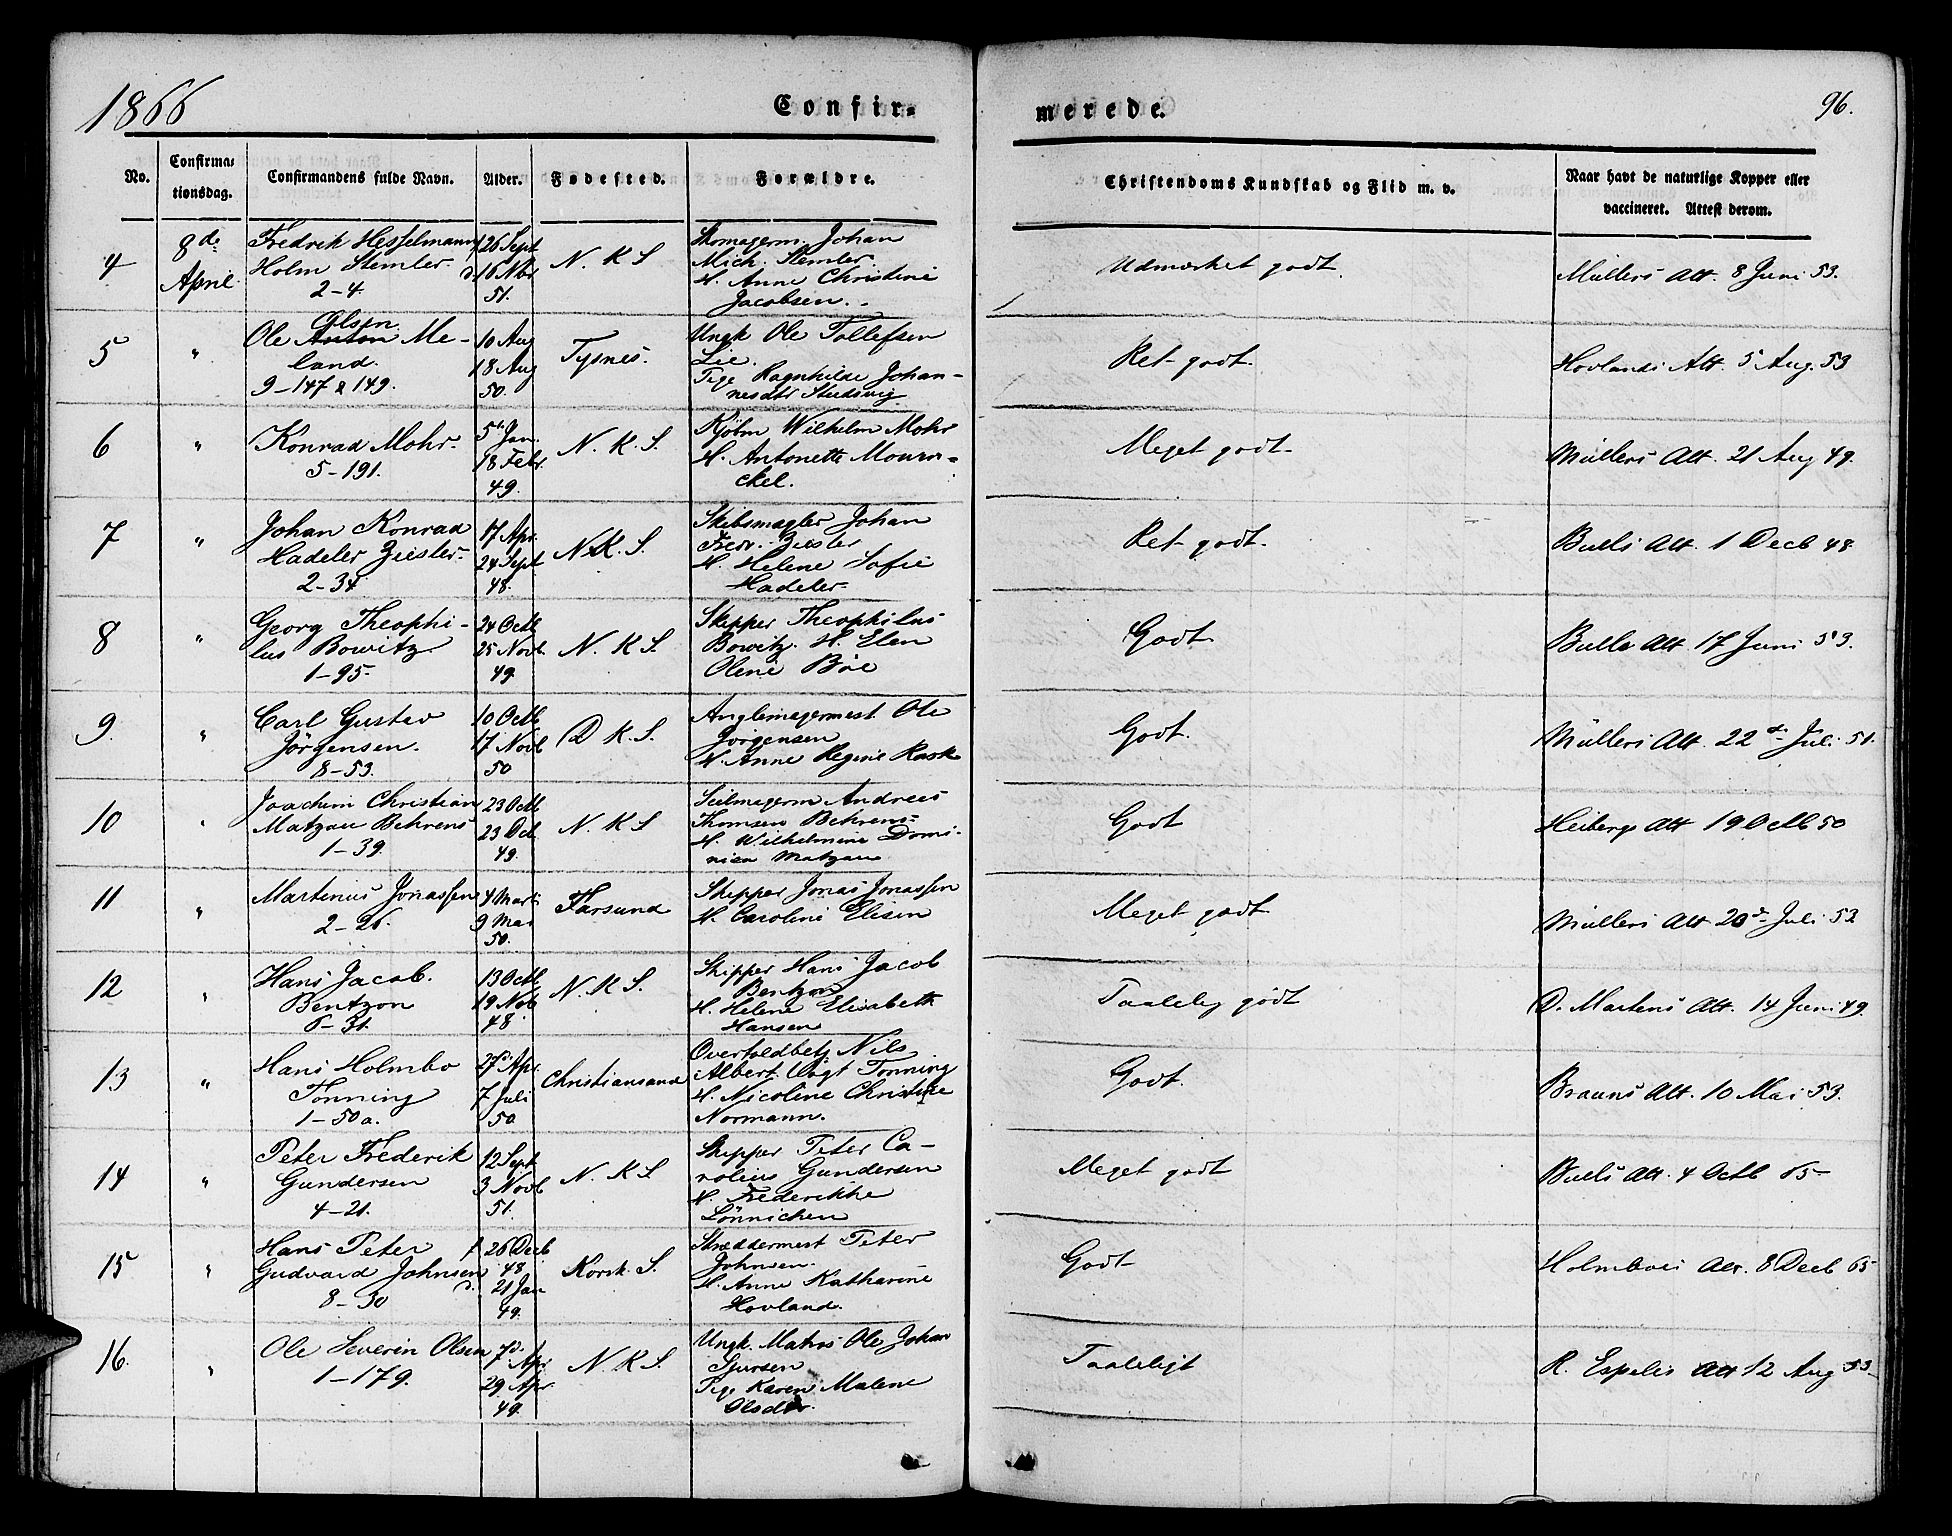 1866
Confir-
merede.
96.
No.
Confirma-
tionsdag.
Confirmandens fulde Navn.
Alder.
Fødested.
Forældre.
Christendoms Kundskab og Flid m. v.
Naar havt de naturlige Kopper eller
vaccineret. Attest derom.
4
8de
April
Fredrik Hesselmann
Holm Stemler
2-4.
f 26 Sept
d. 16 Nbr
51.
N. K S
Skomagerm. Johan
Mich. Stemler.
H. Anne Christine
Jacobsen.
Udmærket godt.
Müllers Att. 8 Juni 53.
5
"
Olsen
Ole Anton Me-
land.
9-147 & 149.
10 Aug
18 Aug
50.
Tysnes.
Ungk Ole Tollefsen
Lie.
Pige Ragnhilde Johan-
nesdtr Studsvig
Ret godt.
Hovlands Att. 5 Aug. 53
6
"
Konrad Mohr
5-191.
5t Jan.
18 Febr.
49.
N. K. S.
Kjøbm Wilhelm Mohr
H. Antonette Mowin-
ckel.
Meget godt.
Müllers Att. 21 Aug 49.
7
"
Johan Konrad
Hadeler Ziesler
2-34
17 Apr.
24 Sept
48.
N. K. S.
Skibsmægler Johan
Fredr. Ziesler
H. Helene Sofie
Hadeler
Ret godt.
Bulls Att. 1 Decb 48.
8
"
Georg Theophi-
lus Bowitz
1-95.
24 Octb
25 Novb.
49.
N. K S.
Skipper Theophilus
Bowitz. H. Elen
Oline Böe
Godt.
Bulls Att. 17 Juni 53.
9.
"
Carl Gustav
Jörgensen.
8-53.
10 Octb
17 Novb
50
D K. S.
Anglemagermest. Ole
Jörgensen
H. Anne Regine Rask
Godt.
Müllers Att. 22de Juli 51.
10
"
Joachim Christian
Matzau Behrens
1-39.
23 Octb
23 Dcb.
49.
N. K S
Seilmagerm Andreas
Thomsen Behrens
H. Wilhelmine Domi-
nica Matzau
Godt
Heibergs Att 19 Octb 50
11
"
Martinius Jonassen
2-26.
4 Mart.
9 Mai
50.
Farsund
Skipper Jonas Jonassen
H. Caroline Elisen
Meget godt
Müllers Att 20de Juli 52
12
"
Hans Jacob.
Bentzon
6-31.
13 Octb
19 Nvb
48
N. K S.
Skipper Hans Jacob
Bentzon
H. Helene Elisabeth
Hansen
Taalelig godt
D. Martens Att. 14 Juni 49.
13
"
Hans Holmbo
Tonning
1-50a.
27de Apr.
7 Juli
50
Christiansand
Overtoldbetj Nils
Albert Vogt Tonning
H. Nicoline Christine
Normann.
Godt.
Brauns Att. 10 Mai 53.
14
"
Peter Frederik
Gundersen
4-21.
12 Sept
3 Novb
51.
N. K S
Skipper Peter Ca-
rolius Gundersen
H. Frederikke
Lönnichen
Meget godt
Bulls Att. 4 Octb 65
15
"
Hans Peter
Gudvard Johnsen
8-30
f 26 Decb
48.
d. 21 Jan
49.
Korsk. S.
Skræddermest Peter
Johnsen.
H. Anne Katharine
Hovland.
Godt
Holmboes Att. 8 Decb 65
16.
"
Ole Severin Olsen
1-179.
7d. Apr.
29. Apr.
49.
N. K S.
Ungk. Matros Ole Johan
Sjursen
Pige Karen Malene
Olsdtr.
Taaleligt
R. Espelis Att 12 Aug 53